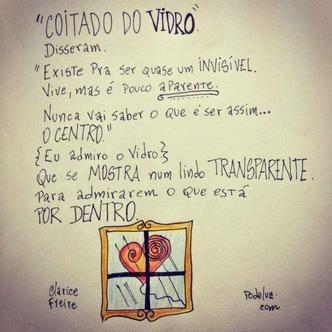 "COITADO DO VIDRO."
Disseram.
"Existe Pra ser quase um iNVISÍVEL.
Vive, mas é pouco aParente.
Nunca vai saber o que é ser assim...
O CENTRO."
{Eu admiro o Vidro}
Que se MOSTRA num lindo TRANSPARENTE.
Para admirarem o que está
POR DENTRO.
Clarice
Freire
Podelua.
com